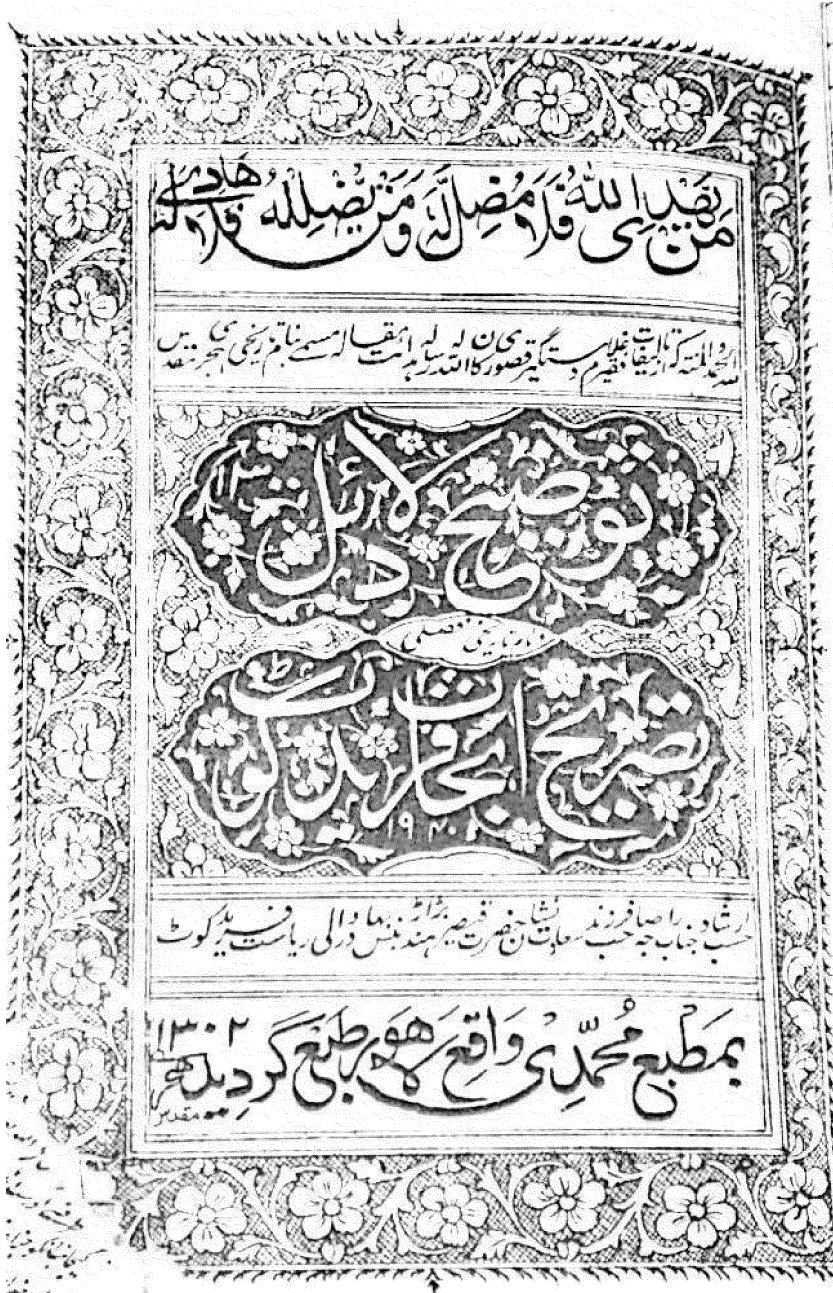 من يهدي الله فلا مضل له ومن يضلله فلا هادي له
لله الحمد والمنة که از تالیفات فقیر غلام دستگیر قصوری کان الله له رساله هدایت مقاله مسمے بنام تاریخی هجری مقدس
توضیح دلائل
۱۳
تصریح ابحاث فرید کوٹ
۱۹۴۰
حسب ارشاد جناب راجه صاحب فرزند سعادت نشان حضرت قیصر هند بڑاڑ بنس بهادر والی ریاست فرید کوٹ
بمطبع محمدی واقع لاهور طبع گردید
۱۳۰۲
مقدس